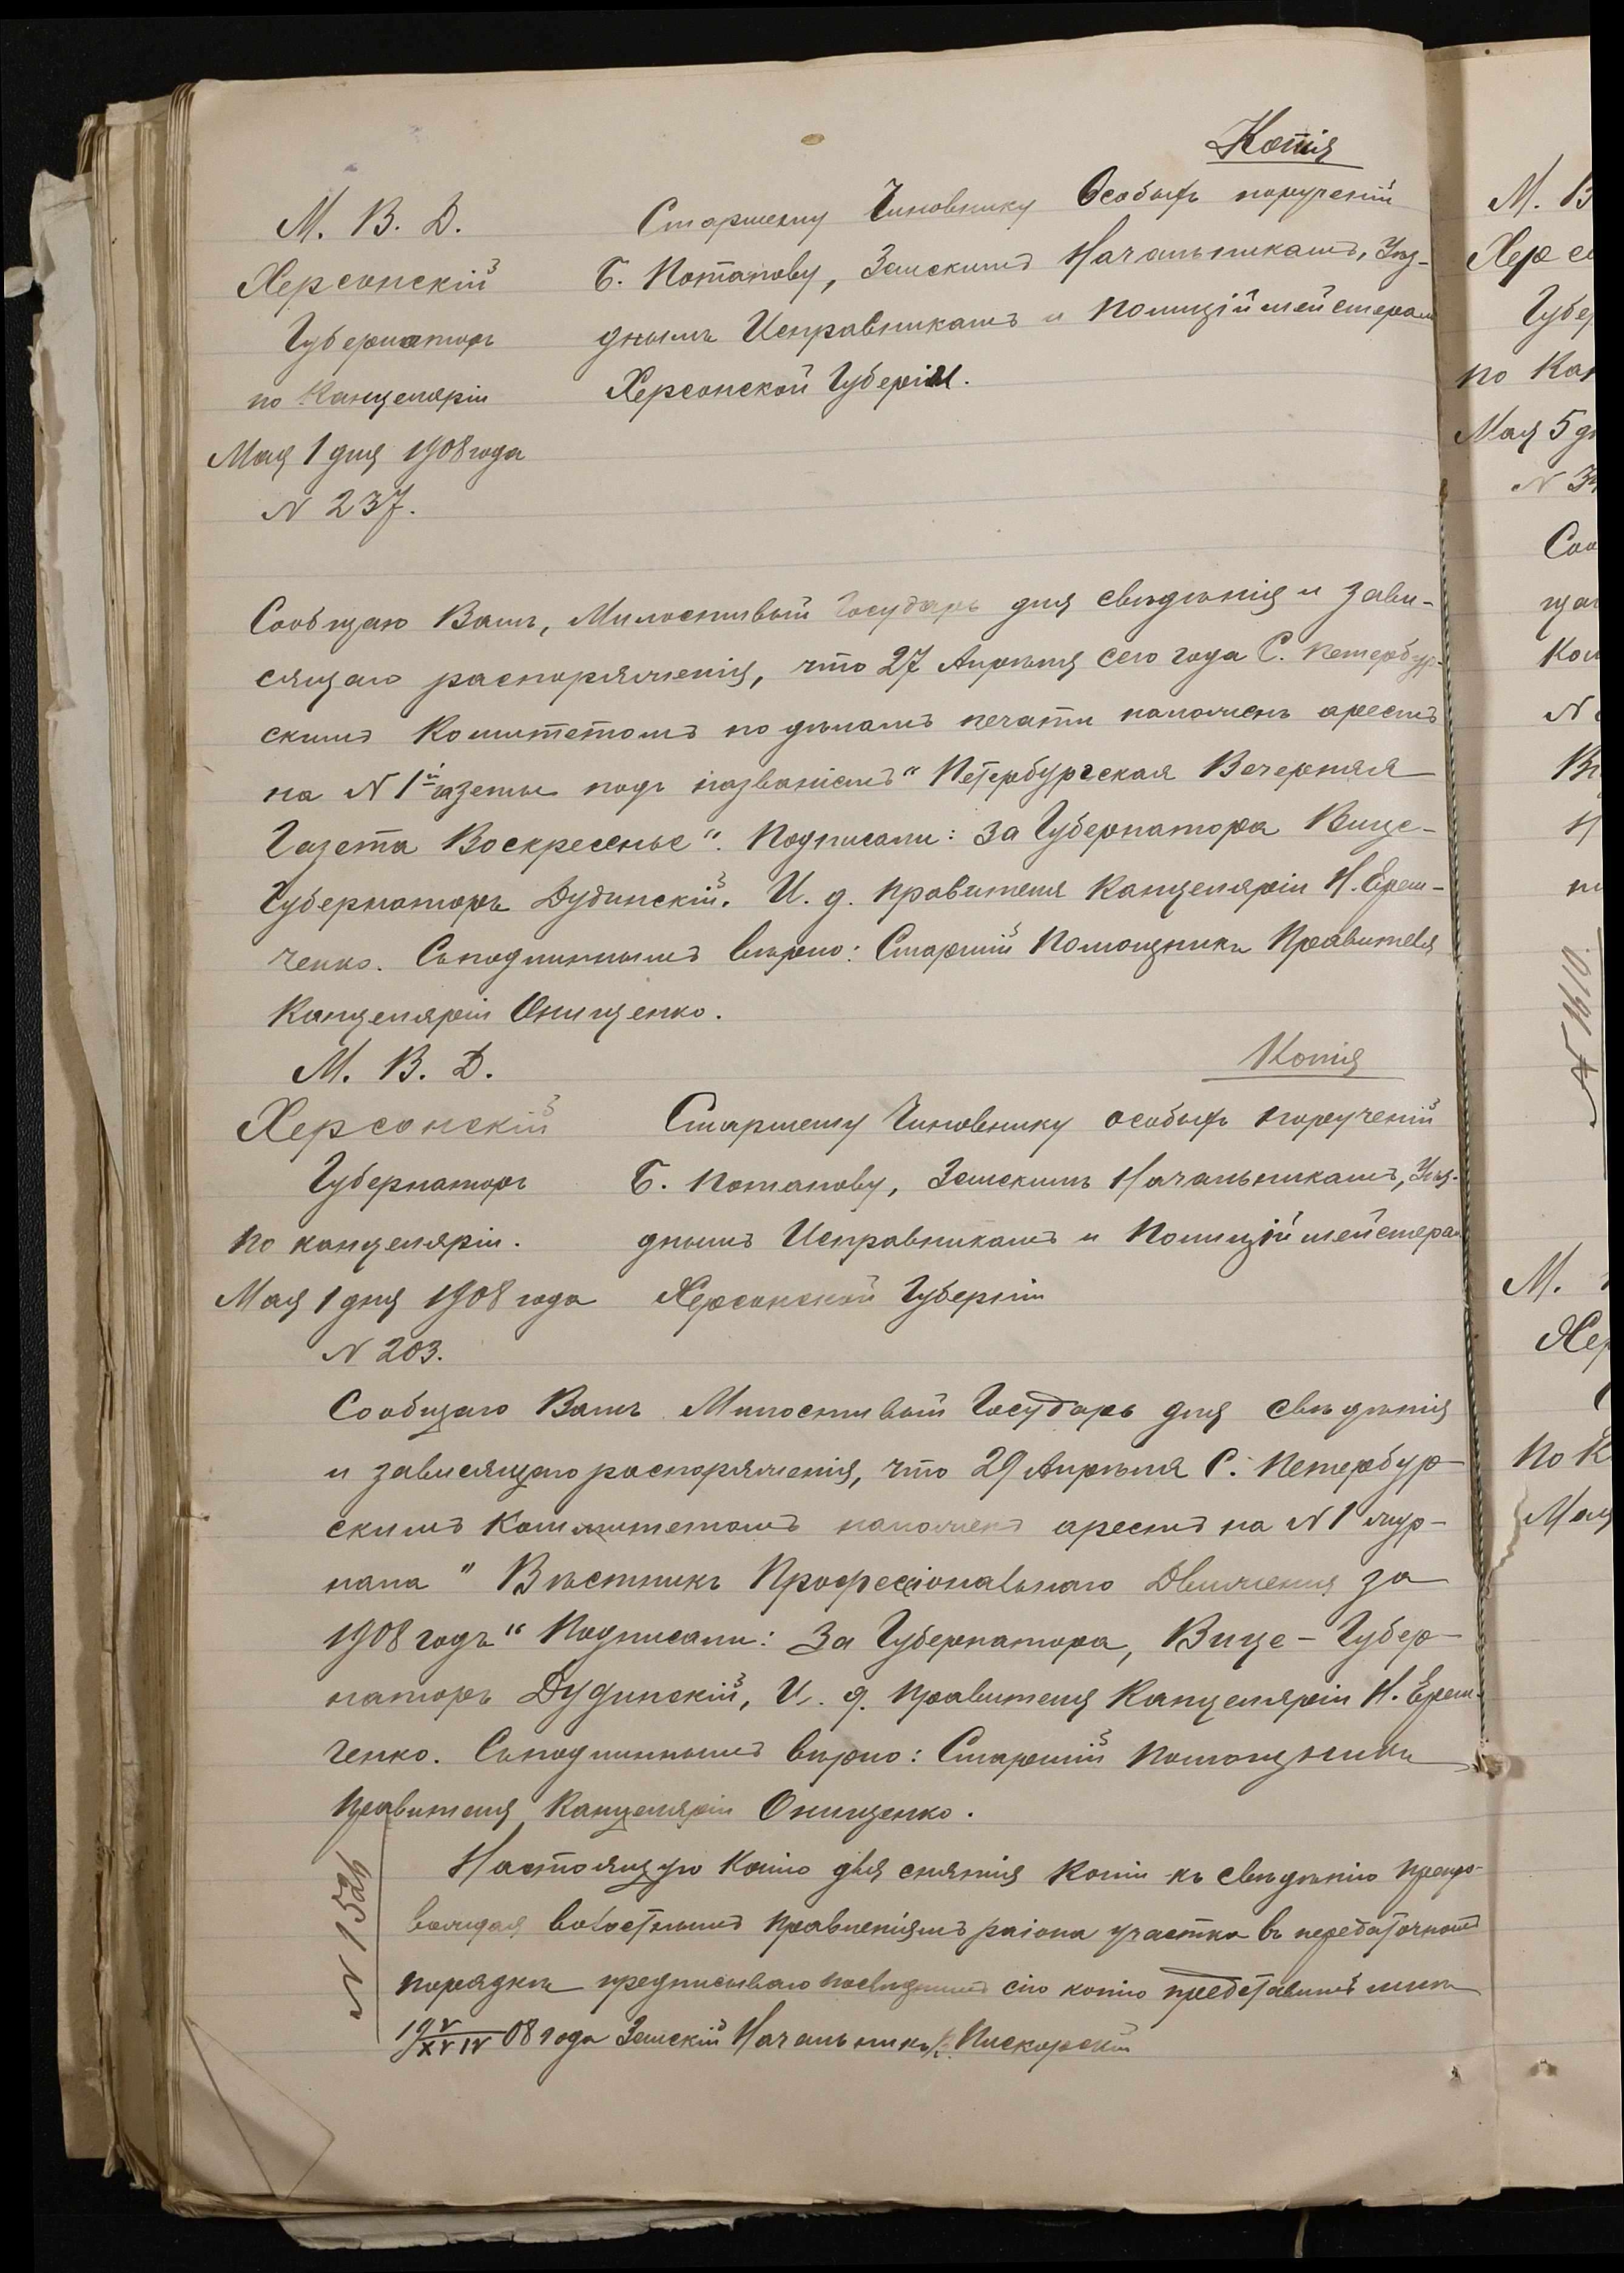 Копія
М. В. Д.
Херсонскій
Губернаторъ
по Канцеляріи
Мая 1 дня 1908 года
N 237.
Старшему Чиновнику Особыхъ порученій
Б. Потапову, Земскимъ Начальникамъ, Уѣз-
днымъ Исправникамъ и Полиціймейстерам
Херсонской Губерніи.
Сообщаю Вамъ, Милостивый Государь для свѣдѣнія и зави-
сящаго распоряженія, что 27 Апрѣля сего года С. Петербур-
скимъ Комитетомъ по дѣламъ печати наложенъ арестъ
на N 1й газеты подъ названіемъ "Петербургская Вечерняя
Газета Воскресенье". Подписали: За Губернатора Вице-
Губернаторъ Дудинскій. И. д. Правителя Канцеляріи Н. Ерем-
ченко. Съподлиннымъ вѣрно: Старшій Помощникъ Правителя
Канцеляріи Онищенко.
М. В. Д.
Херсонскій
Губернаторъ
по канцеляріи.
Мая 1 дня 1908 года
N 203.
Копія
Старшему Чиновнику особыхъ порученій
Б. Потапову, Земскимъ Начальникамъ, Уѣз-
днымъ Исправникамъ и Полиціймейстерам
Херсонской Губерніи
Сообщаю Вамъ Милостивый Государь для свѣдѣнія
и зависящаго распоряженія, что 29 Апрѣля С. Петербур-
скимъ Коммитетомъ наложенъ арестъ на N 1 жур-
нала "Вѣстникъ Професіональнаго Движенія за
1908 годъ" Подписали: За Губернатора, Вице-Губер-
наторъ Дудинскій, И. д. Правителя Канцеляріи Н. Ерем-
ченко. Съподлиннымъ вѣрно: Старшій Помощникъ
Правителя Канцеляріи Онищенко.
N 1526
Настоящую копію для снятія копіи къ свѣдѣнію препро-
вождая волостнымъ Правленіямъ раіона участка въ передаточномъ
порядкѣ предписываю послѣднимъ сію копію представить мнѣ
08 года Земскій Начальникъ Пискорскій
М. В
Херсо
Губер
по Кан
Мая 5 дн
N
Соо
щаг
Ком
N
N 1610.
М.
Хер
по К
Мая